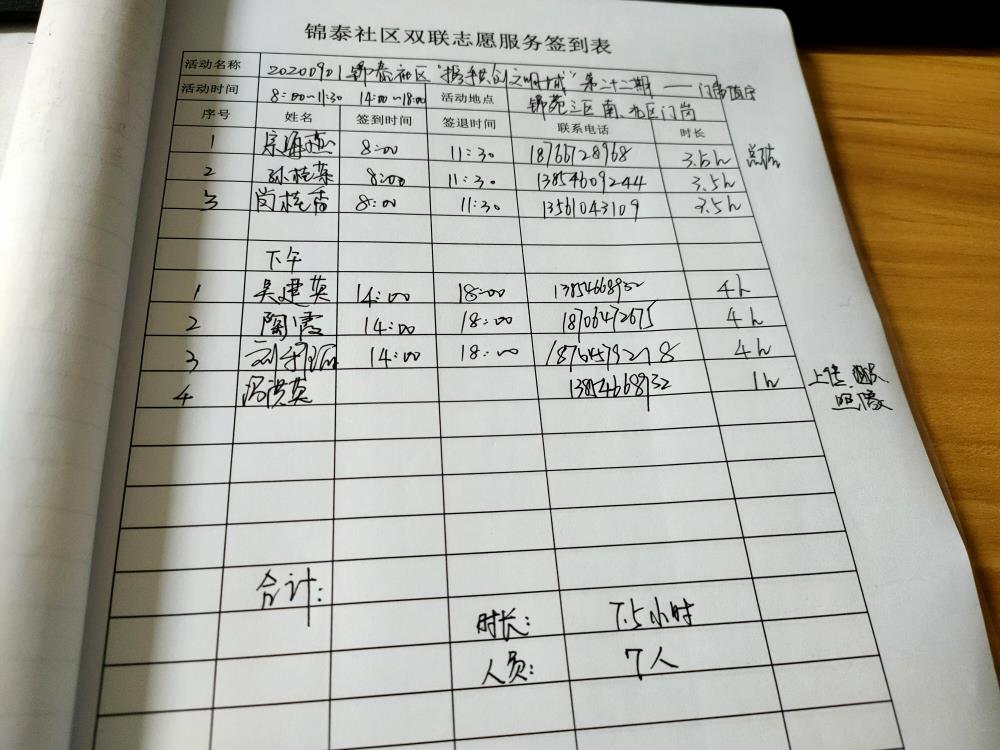 锦泰社区双联志愿服务签到表
活动名称 20200901锦泰社区"携手共创文明城"第二十二期——门岗值守
活动时间 8:00~11:30 14:00~18:00 活动地点 锦苑三区南、北区门岗
序号 姓名 签到时间 签退时间 联系电话 时长
1 8:00 11:30 18766728968 3.5h
2 孙桂荣 8:00 11:30 13854609244 3.5h
3 尚桂香 8:00 11:30 13561043109 3.5h
下午
1 吴建英 14:00 18:00 13854668932 4h
2 陶霞 14:00 18:00 18706472675 4h
3 14:00 18:00 18764579278 4h
4 冯洪英 13854668932 1h 上传
照像
合计:
时长: 7.5小时
人员: 7人